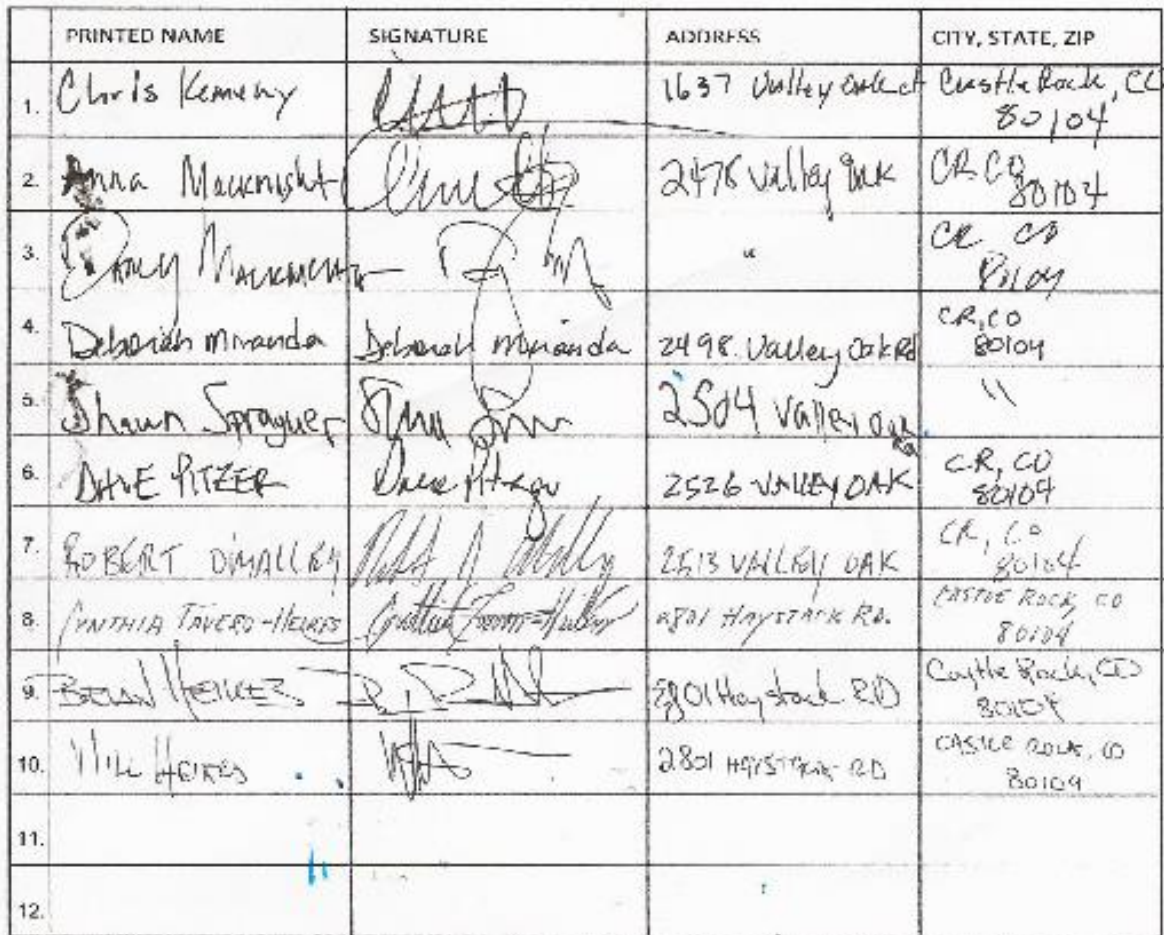 PRINTED NAME SIGNATURE ADDRESS CITY, STATE, ZIP
1. Chris Kemeny 1637 Valley Oak ct Castle Rock, CO
80104
2. Anna Macknight 2478 Valley Oak CR CO
80104
3. " CR CO
80104
4. Deborah Miranda Deborah Miranda 2498 Valley Oak Rd CR, CO
80104
5. Shawn Sprague 2504 Valley Oak "
6. DAVE PITZER Dave Pitzer 2526 VALLEY OAK CR, CO
80104
7. ROBERT 2513 VALLEY OAK CR, CO
80104
8. CYNTHIA 2801 HAYSTACK RD. CASTLE ROCK, CO
80104
9. HEIRES 2801 Haystack RD Castle Rock, CO
80104
10. HEIRES 2801 HAYSTACK RD CASTLE ROCK, CO
80104
11.
12.